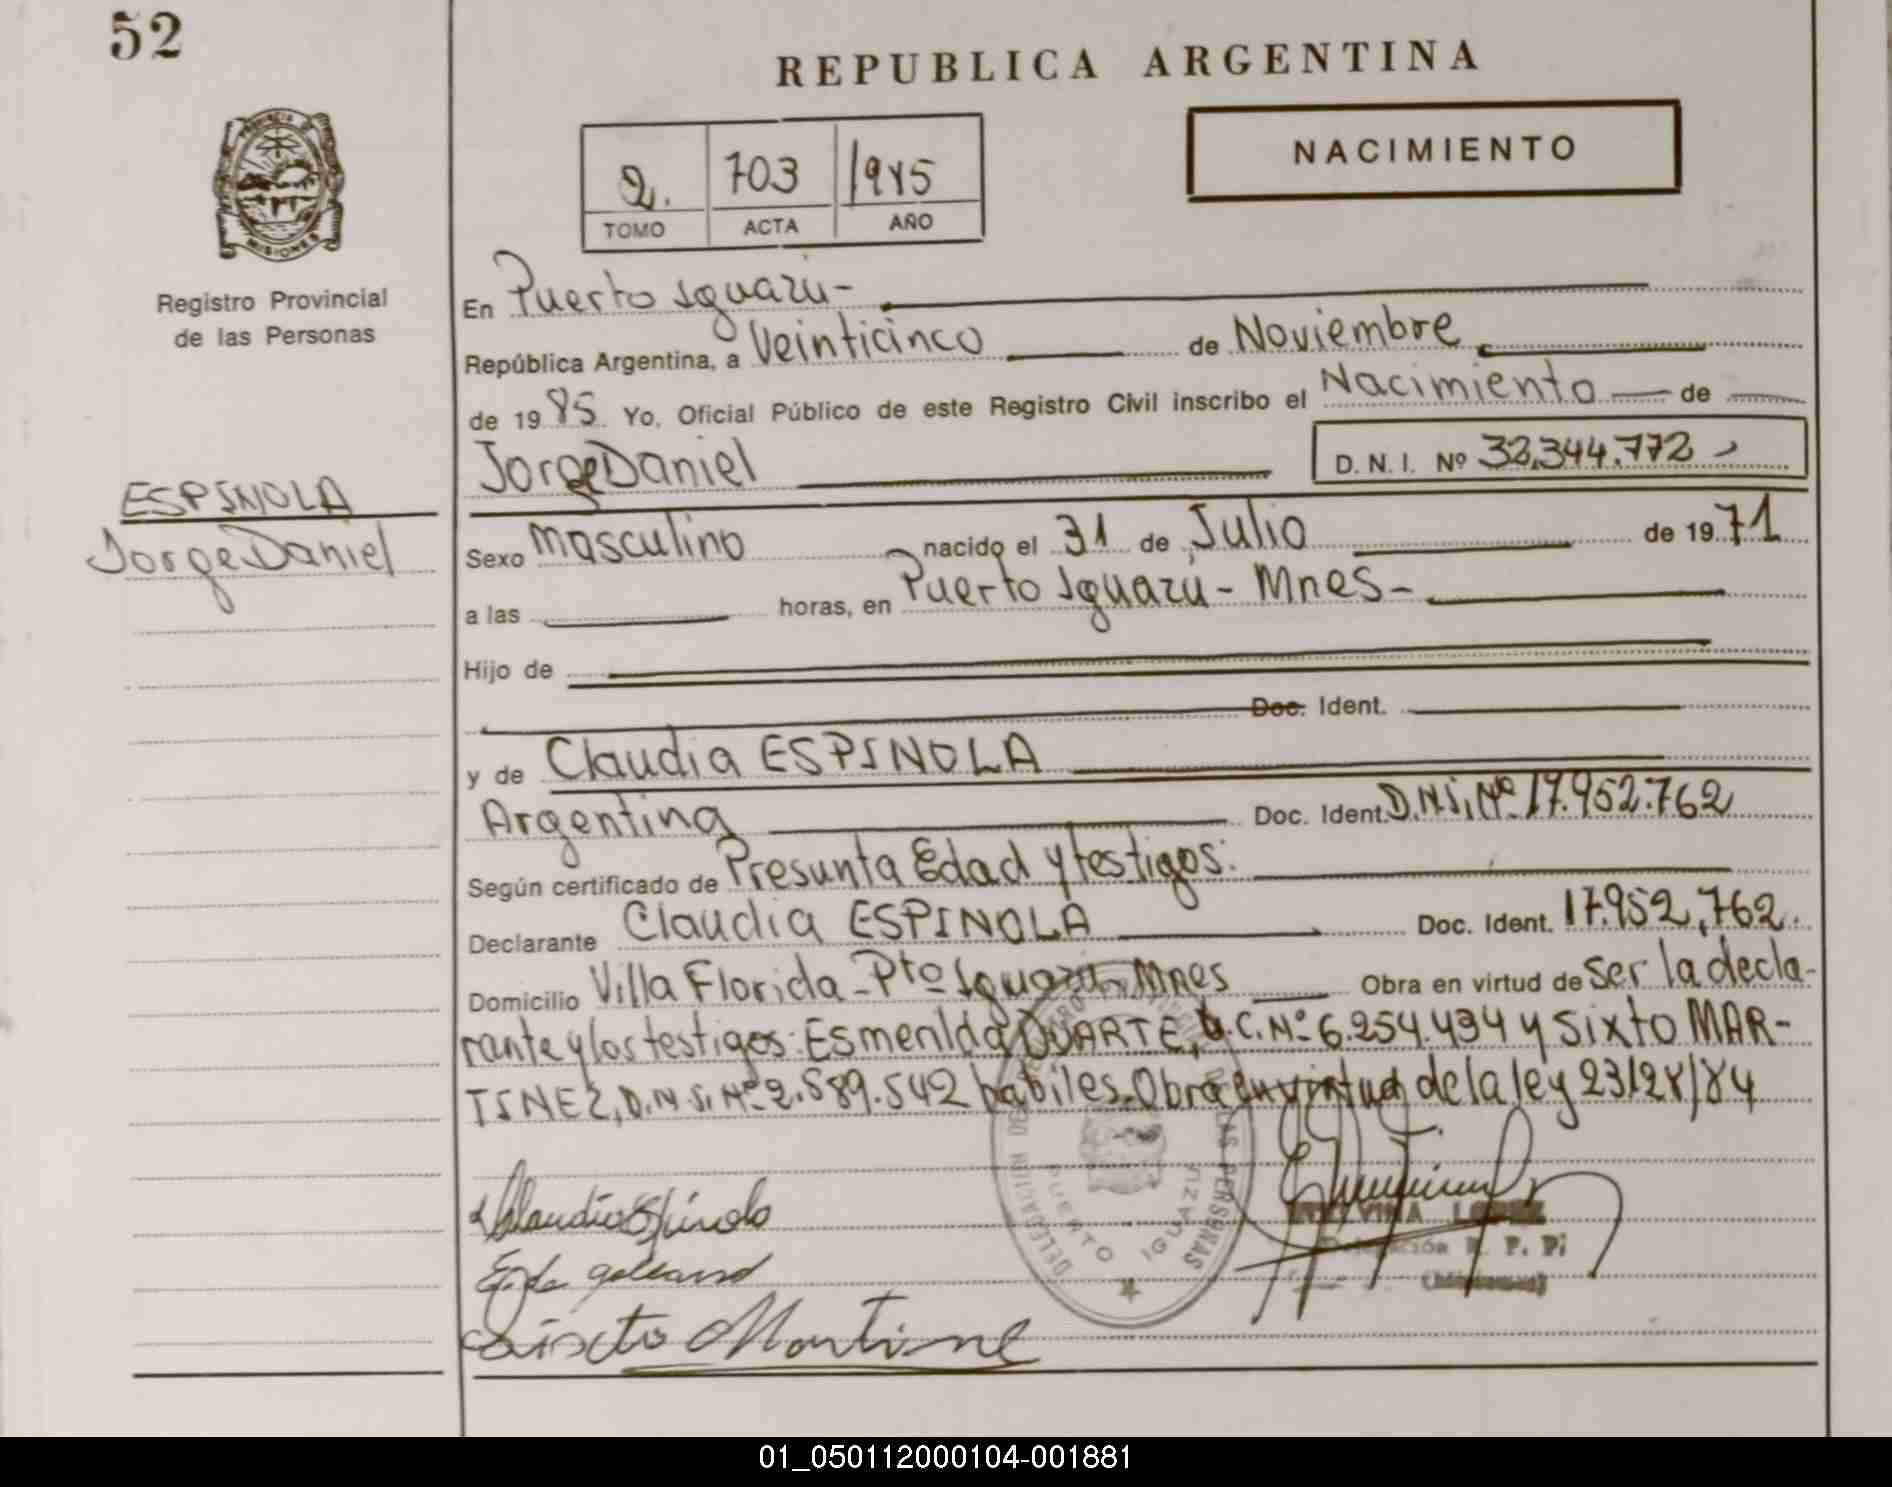 52
REPUBLICA ARGENTINA
NACIMIENTO
2. 703 1985
TOMO ACTA AÑO
PROVINCIA DE
MISIONES
Registro Provincial
de las Personas
En Puerto Iguazu-
República Argentina, a Veinticinco de Noviembre
de 1985 Yo, Oficial Público de este Registro Civil inscribo el Nacimiento de
Jorge Daniel D. N. I. Nº 32.344.772
ESPINOLA
Jorge Daniel
Sexo masculino nacido el 31 de Julio de 1971
a las horas, en Puerto Iguazú - Mnes-
Hijo de
Doc. Ident.
y de Claudia ESPINOLA
Argentina Doc. Ident. D.N.I. Nº 17.952.762
Según certificado de Presunta Edad y testigos:
Declarante Claudia ESPINOLA Doc. Ident. 17.952.762.
Domicilio Villa Florida - Pto Iguazu - Mnes Obra en virtud de ser la decla-
rante y los testigos: Esmerilda DUARTE, L.C. Nº 6.254.434 y Sixto MAR-
TINEZ, D.N.I. Nº 2.589.542 habiles. Obra en virtud de la ley 23128/84
DELEGACION PUERTO IGUAZU
DE LAS PERSONAS
Claudia Espinola
LOPEZ
Delegación R. P. P.
(Misiones)
Sixto Martine
01_050112000104-001881